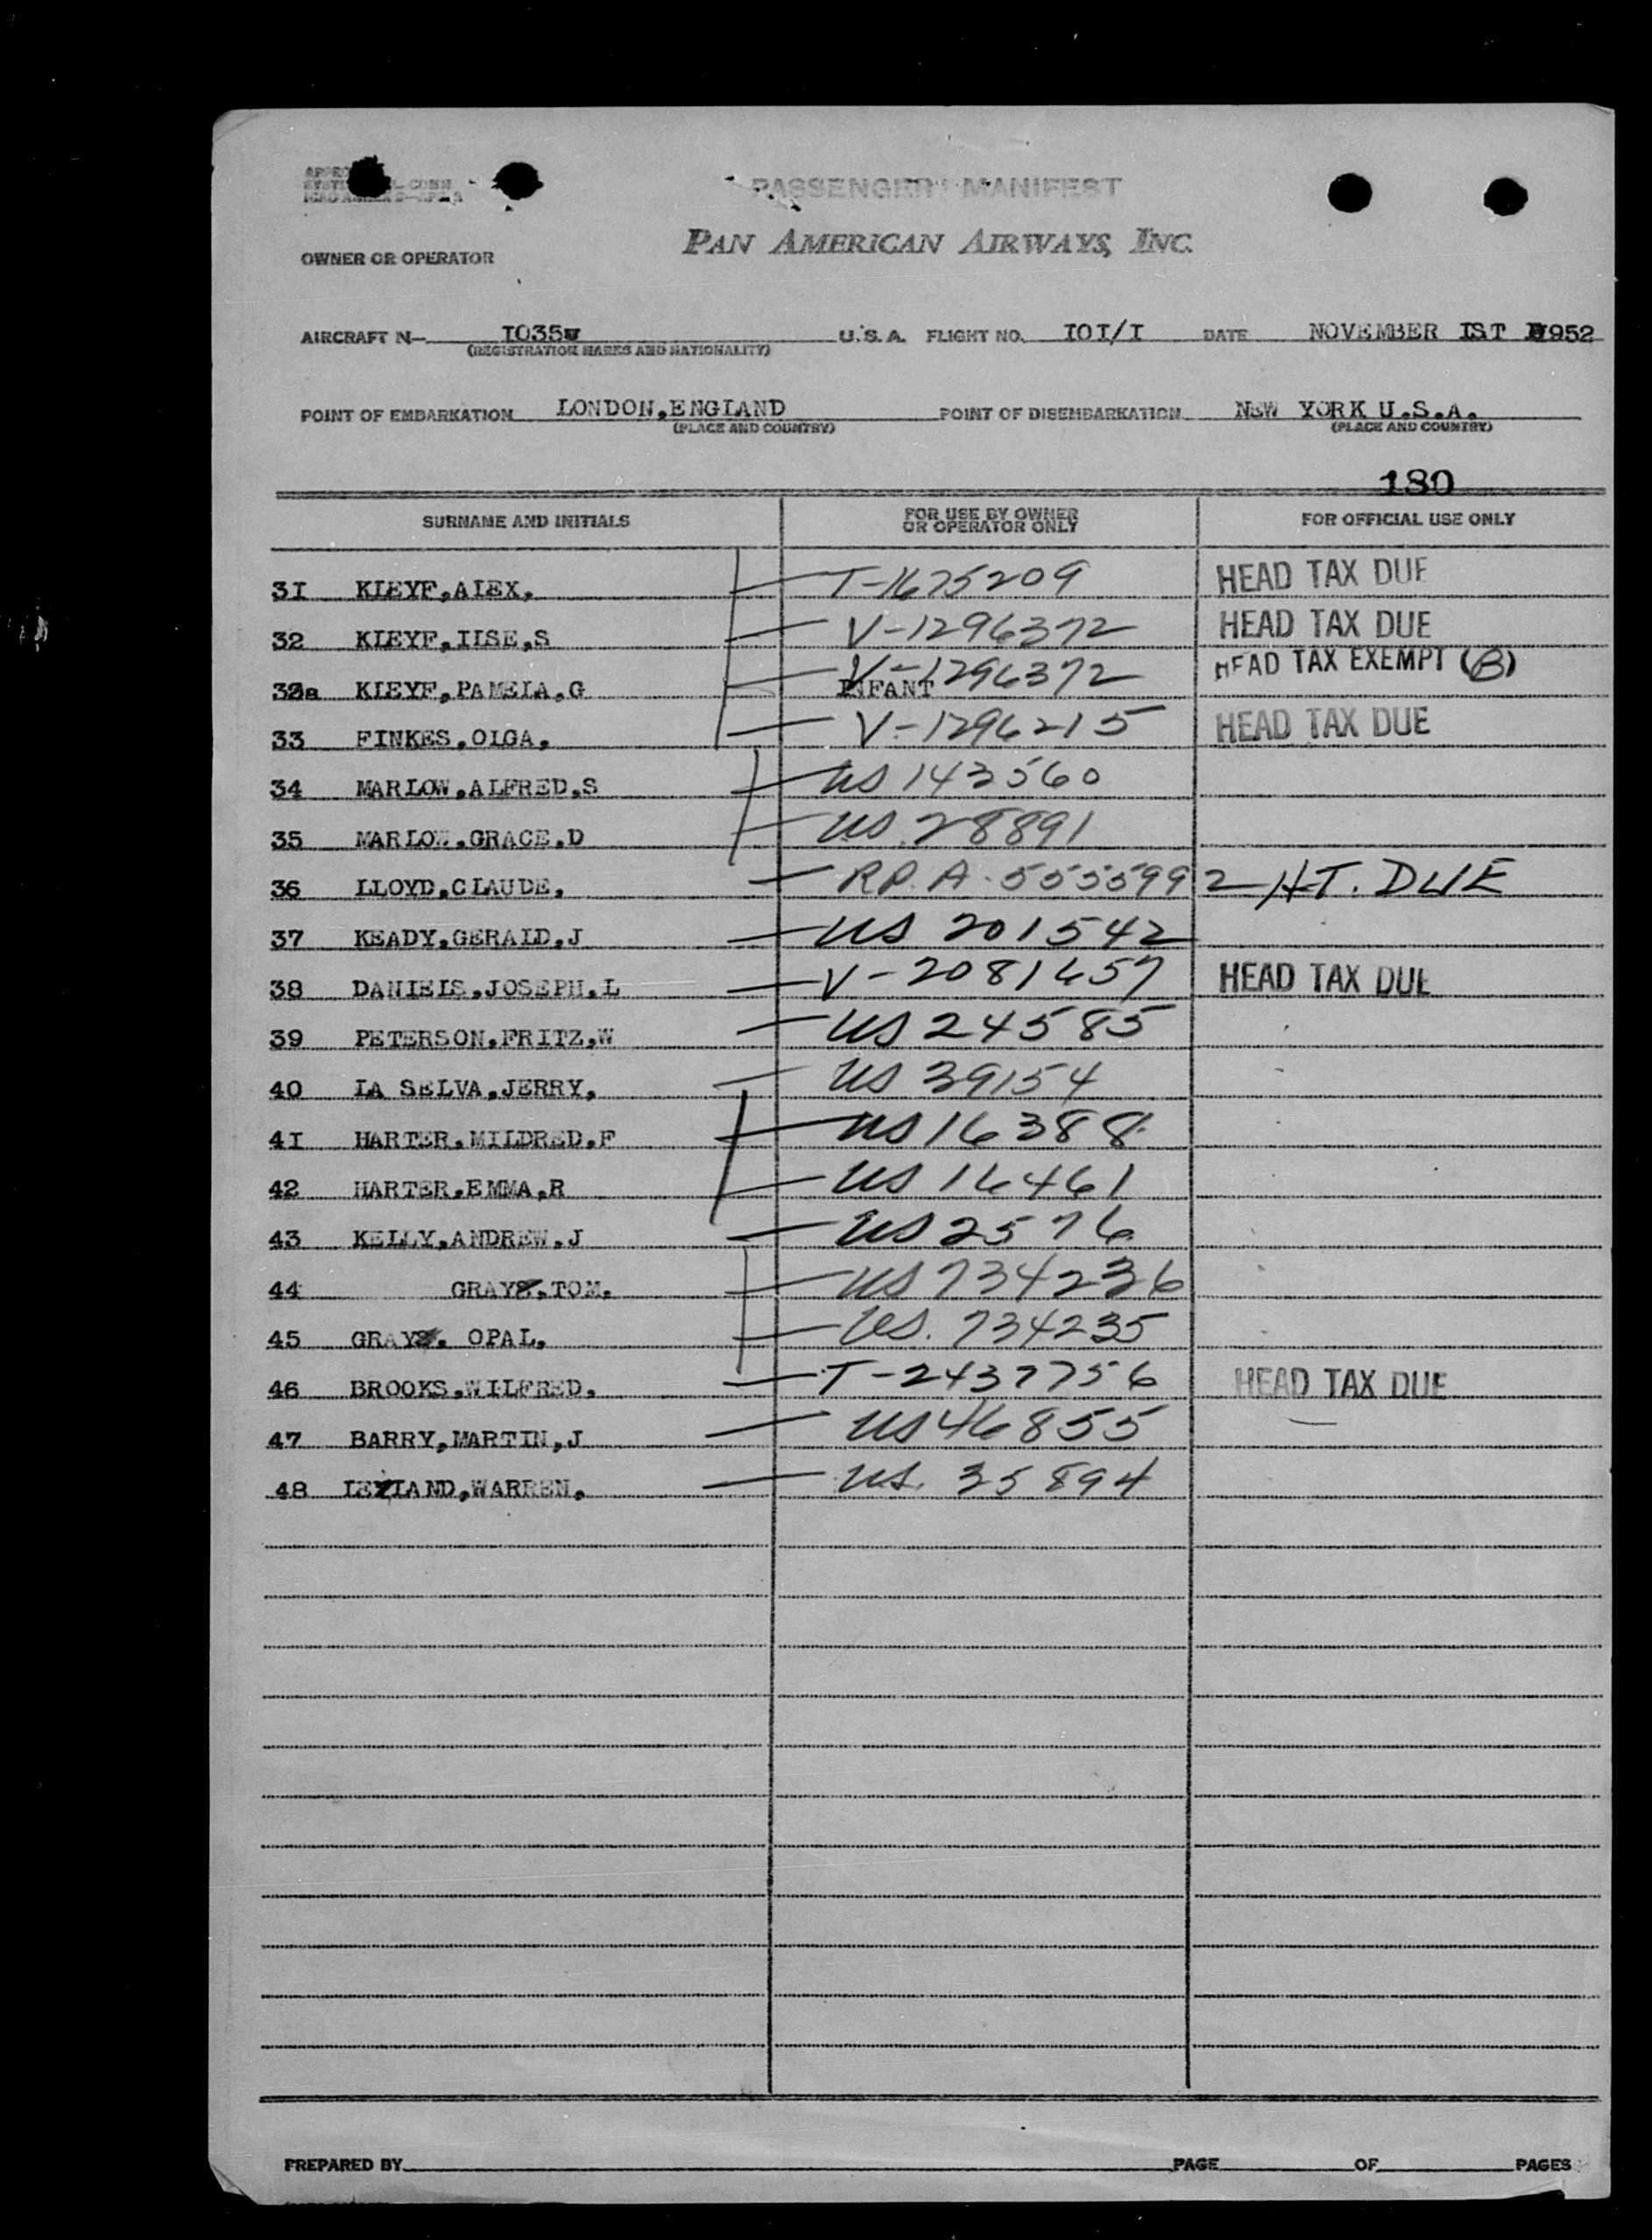 PASSENGER MANIFEST
PAN AMERICAN AIRWAYS, INC.
OWNER OR OPERATOR
AIRCRAFT N— I035 U.S.A. FLIGHT NO. IOI/I DATE NOVEMBER IST 1952
(REGISTRATION MARKS AND NATIONALITY)
POINT OF EMBARKATION LONDON,ENGLAND POINT OF DISEMBARKATION NEW YORK U.S.A.
(PLACE AND COUNTRY) (PLACE AND COUNTRY)
180
SURNAME AND INITIALS FOR USE BY OWNER OR OPERATOR ONLY FOR OFFICIAL USE ONLY
3I KLEYF,ALEX. T-1675209 HEAD TAX DUE
32 KLEYF,ILSE,S V-1296372 HEAD TAX DUE
32a KLEYF,PAMELA,G INFANT V-1296372 HEAD TAX EXEMPT (B)
33 FINKES.OLGA. V-1296215 HEAD TAX DUE
34 MARLOW.ALFRED.S US 143560
35 MARLOW.GRACE.D US.28891
36 LLOYD,CLAUDE. RP.A-5555992 HT. DUE
37 KEADY,GERALD.J US 201542
38 DANIELS.JOSEPH.L V-2081657 HEAD TAX DUE
39 PETERSON,FRITZ.W US 24585
40 LA SELVA,JERRY. US 39154
4I HARTER.MILDRED.F US 16388
42 HARTER.EMMA.R US 16461
43 KELLY,ANDREW.J US 2576
44 GRAY.TOM. US 734236
45 GRAY. OPAL. US. 734235
46 BROOKS.WILFRED. T-2437756 HEAD TAX DUE
47 BARRY,MARTIN,J US 46855
48 LEYLAND,WARREN. US. 35894
PREPARED BY PAGE OF PAGES